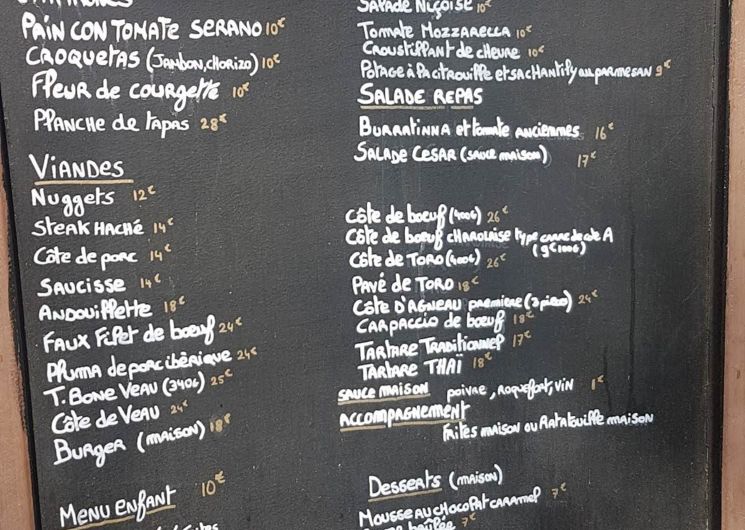 PAIN CON TOMATE SERANO 10€
CROQUETAS (JAMBON, CHORIZO) 10€
Fleur de courgette 10€
PLANCHE de TAPAS 28€
VIANDES
Nuggets 12€
Steak HACHÉ 14€
Côte de porc 14€
SAUCISSE 14€
ANDOUILLETTE 18€
FAUX FILET de bœuf 24€
PLUMA de porc ibérique 24€
T. BONE VEAU (340G) 25€
Côte de VEAU 24€
BURGER (MAISON) 18€
MENU ENFANT 10€
SALADE NIÇOISE 10€
Tomate MOZZARELLA 10€
CROUSTILLANT de CHEVRE 10€
POTAGE à la citrouille et sa CHANTILLY au PARMESAN 9€
SALADE REPAS
BURRATINNA et tomate ANCIENNES 16€
SALADE CESAR (SAUCE MAISON) 17€
Côte de bœuf (400G) 26€
Côte de bœuf CHAROLAISE type
(9€ 100G)
Côte de TORO (400G) 26€
PAVÉ de TORO 18€
Côte D'AGNEAU PREMIERE (3 pieces) 24€
CARPACCIO de bœuf 18€
TARTARE TRADITIONNEL 17€
TARTARE THAÏ 18€
SAUCE MAISON POIVRE, ROQUEFORT, VIN 1€
ACCOMPAGNEMENT
FRITES MAISON OU RATATOUILLE MAISON
DESSERTS (MAISON)
MOUSSE AU CHOCOLAT CARAMEL 7€
7€